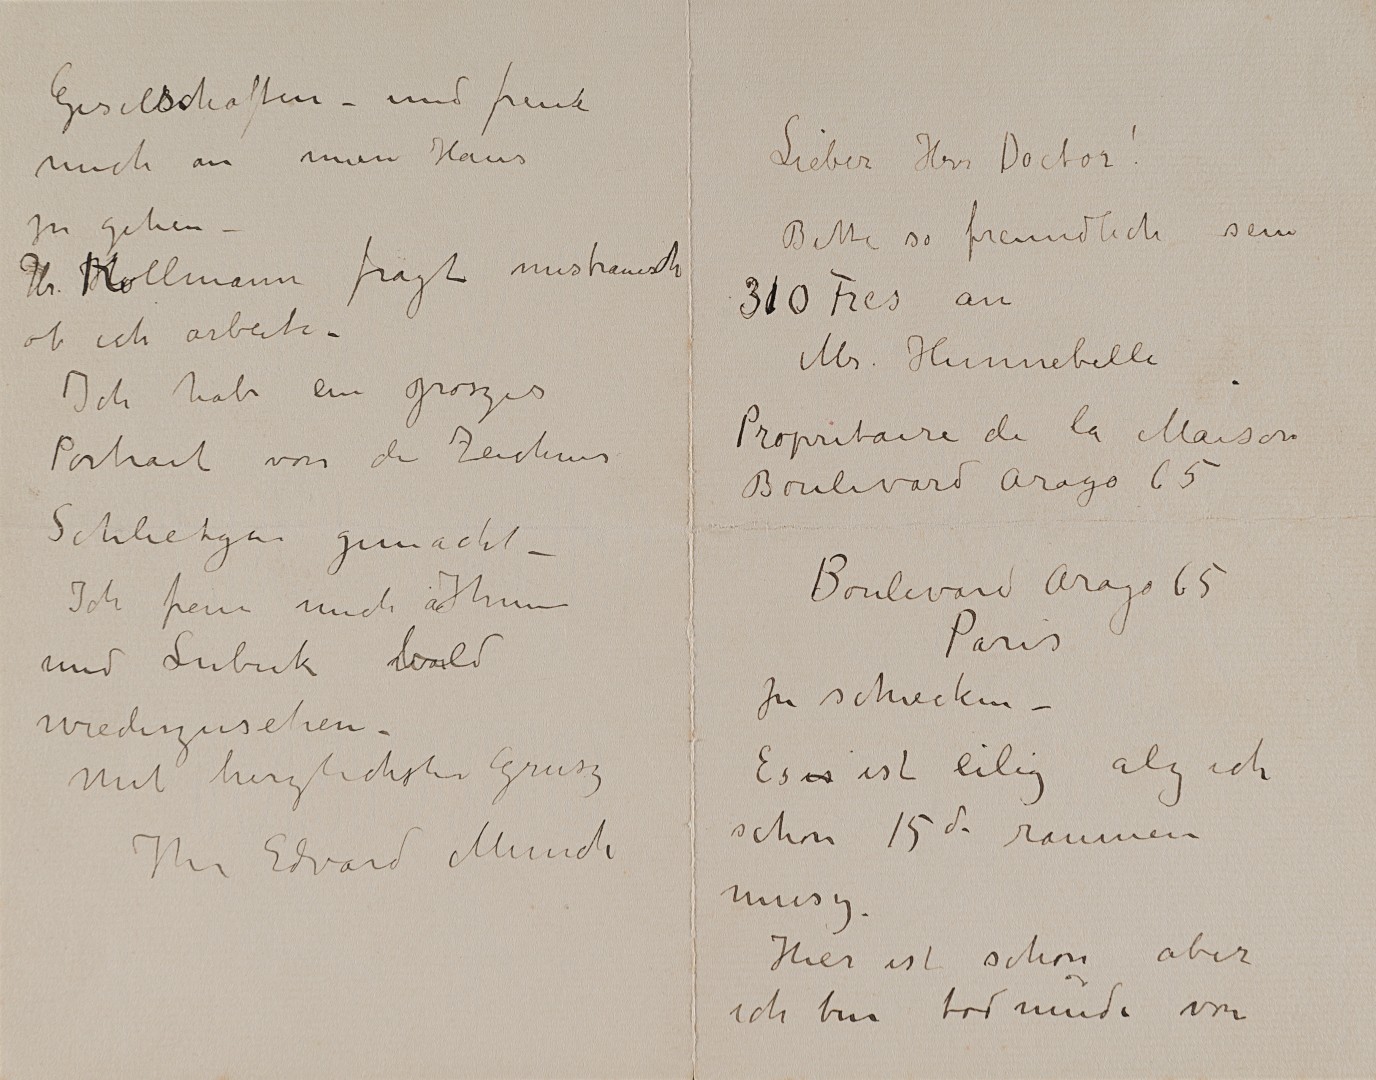 Lieber Herr Doctor!
Bitte so freundlich sein
310 Frcs an
Mr. Hunnebelle
Propritaire de la Maison
Boulevard Arago 65
Boulevard Arago 65
Paris
zu schicken –
Es is ist eilig alz ich
schon 15 d. raumen
musz.
Hier ist schön aber
ich bin todmüde von
Gesellschaften – und freue
mich an mein Haus
zu gehen –
Hr. Kollmann fragt mistrauisch
ob ich arbeite –
Ich habe ein groszes
Portrait von de Zeichner
Schlittgen gemacht –
Ich freue mich Ihnen
und Lubeck bald
wiederzusehen –
Mit herzlichster Grusz
Ihr Edvard Munch